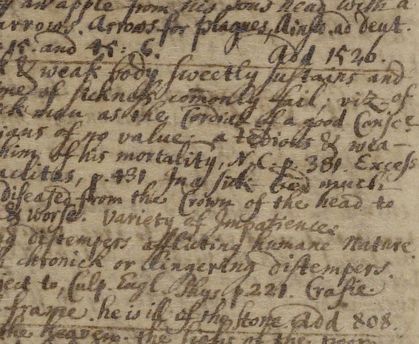 an apple from his sons head with a
arrows. Arrows for plagues, Ainsw. ad Deut.
15. and 45: 6.
Add 1520.
& weak body sweetly sustains and
me of sickness comonly fail, viz. of
ck man as the Cordial of a good Consce
ians of no value a tedious & wea-
him of his mortality, N. C. p. 381. Excess
p. 431. In a sick bed much
diseased from the Crown of the head to
& worse. Variety of Impatience.
g distempers afflicting humane nature.
chronick or lingering distempers.
ject to, Culp. Engl. Phys. p 221. Crasie.
frame. he is ill of the stone. Add 808.
the heaven. the